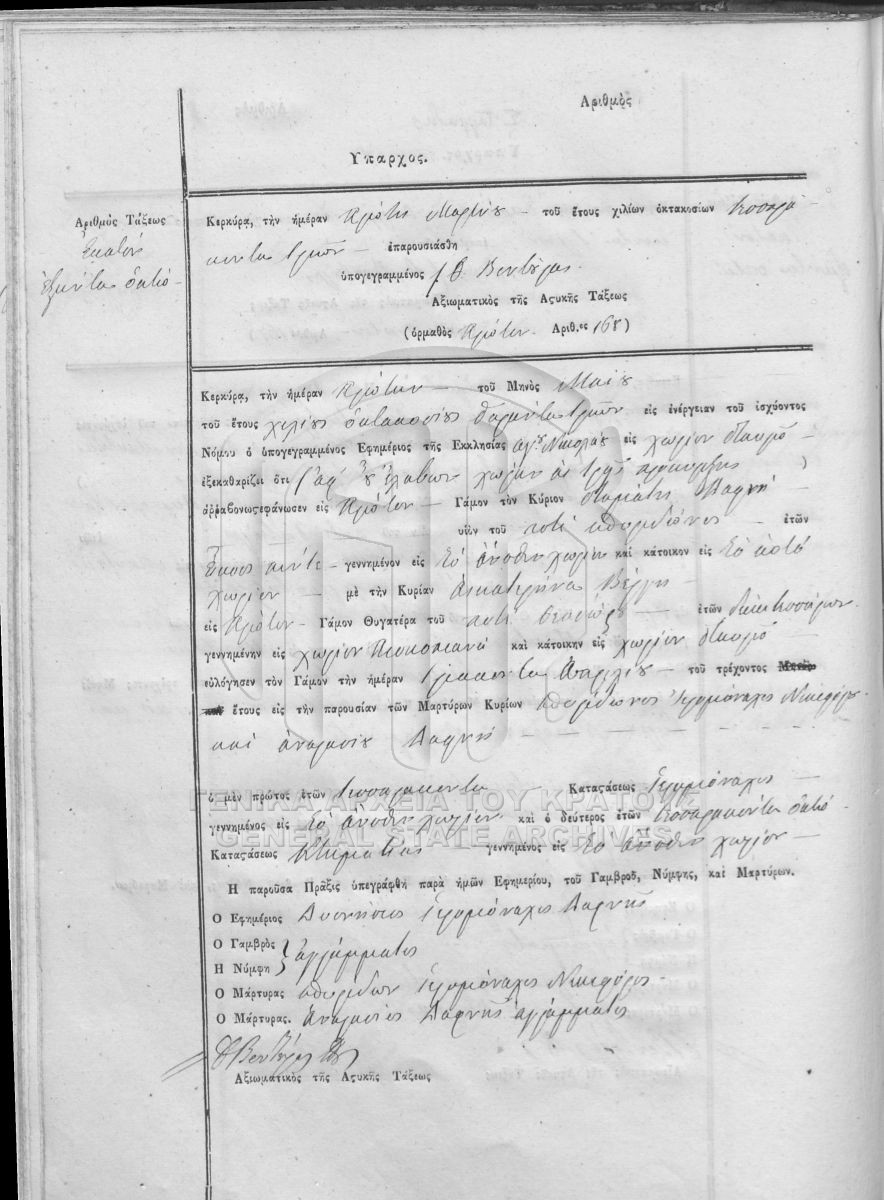 Αριθμὸς
Υπαρχος.
Αριθμὸς Τάξεως
Εκατὸν
ἑξήντα ὀκτὼ
Κερκύρα, τὴν ἡμέραν Πρώτη Μαρτίου - τοῦ ἔτους χιλίων ὀκτακοσίων Τεσσαρά-
κοντα τριῶν - ἐπαρουσιάσθη
ὑπογεγραμμένος Βεντύρας
Αξιωματικὸς τῆς Αςυκῆς Τάξεως
(ὁρμαθὸς Πρώτον Αριθ.ες 168)
Κερκύρα, τὴν ἡμέραν Πρώτην - τοῦ Μηνὸς Μαΐου
τοῦ ἔτους χιλίους ὀκτακοσίους σαράντα τριῶν εἰς ἐνέργειαν τοῦ ἰσχύοντος
Νόμου ὁ ὑπογεγραμμένος Εφημέριος τῆς Εκκλησίας ἁγίου Νικολάου εἰς χωρίον Σταυρὸ -
ἐξεκαθαρίζει ὅτι (ἀφ' οὗ ἔλαβων χώραν αἱ τρεῖς προκυρήξεις)
ἀῤῥαβωνοςεφάνωσεν εἰς Πρώτον - Γάμον τὸν Κύριον Σταμάτης Δαφνὴ -
υἱὸν τοῦ ποτὲ Σπυρίδωνος - ἐτῶν
Εἴκοσι πέντε - γεννημένον εἰς Τὸ ἄνοθεν χωρίον καὶ κάτοικον εἰς Τὸ αὐτὸ
χωρίον - μὲ τὴν Κυρίαν Αἰκατερήνα Βέργη -
εἰς Πρώτον - Γάμον Θυγατέρα τοῦ ποτὲ Θεοδώρου - ἐτῶν δεκατεσσάρων
γεννημένην εἰς χωρίον Βενισκιανὰ καὶ κάτοικην εἰς χωρίον Σταυρὸ -
εὐλόγησεν τὸν Γάμον τὴν ἡμέραν Τριακοντα Απριλίου - τοῦ τρέχοντος
ἔτους εἰς τὴν παρουσίαν τῶν Μαρτύρων Κυρίων Σπυρίδωνος Ἱερομόναχος Νικηφόρος
καὶ ἀναστασίου Δαφνὴ
ὁ μὲν πρῶτος ἐτῶν Τεσσαρακοντα - Καταςάσεως Ἱερομόναχος -
γεννημένος εἰς Τὸ ἄνοθεν χωρίον καὶ ὁ δεύτερος ἐτῶν Τεσσαρακόντα ὀκτὼ -
Καταςάσεως Κτηματίας γεννημένος εἰς Τὸ ἄνοθεν χωρίον -
Η παροῦσα Πράξις ὑπεγράφθη παρὰ ἡμῶν Εφημερίου, τοῦ Γαμβροῦ, Νύμφης, καὶ Μαρτύρων.
Ο Εφημέριος Διονήσιος Ἱερομόναχος Δαφνῆς
Ο Γαμβρὸς
Η Νύμφη } ἀγράμματος
Ο Μάρτυρας Σπυρίδων Ἱερομόναχος Νικηφόρος -
Ο Μάρτυρας. Ἀναστάσιος Δαφνῆς ἀγράμματος
Αξιωματικὸς τῆς Αςυκῆς Τάξεως
ΓΕΝΙΚΑ ΑΡΧΕΙΑ ΤΟΥ ΚΡΑΤΟΥΣ
GENERAL STATE ARCHIVES